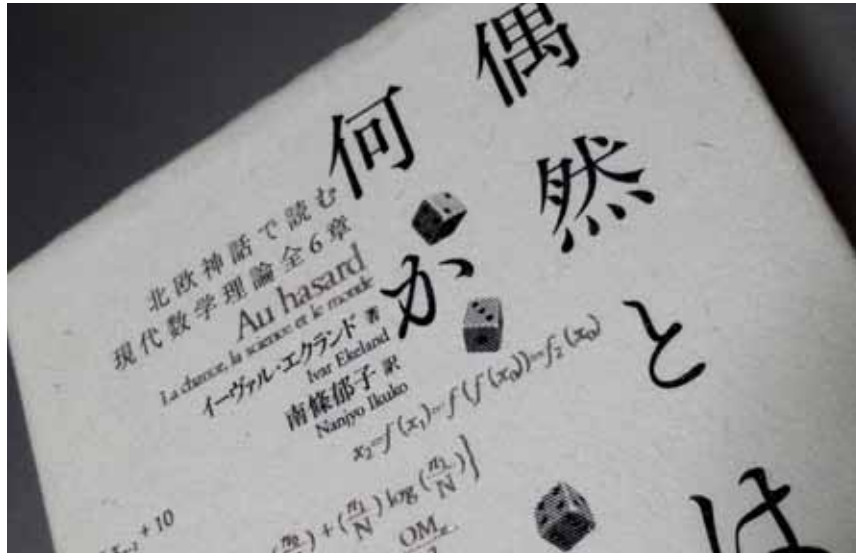 偶然とは
何か
北欧神話で読む
現代数学理論全6章
Au hasard
La chance, la science et le monde
イーヴァル・エクランド 著
Ivar Ekeland
南條郁子 訳
Nanjyo Ikuko
x₂=f(x₁)=f(f(x₀))=f₂(x₀)
+ (n₁/N) log (n₁/N)]
+ 10